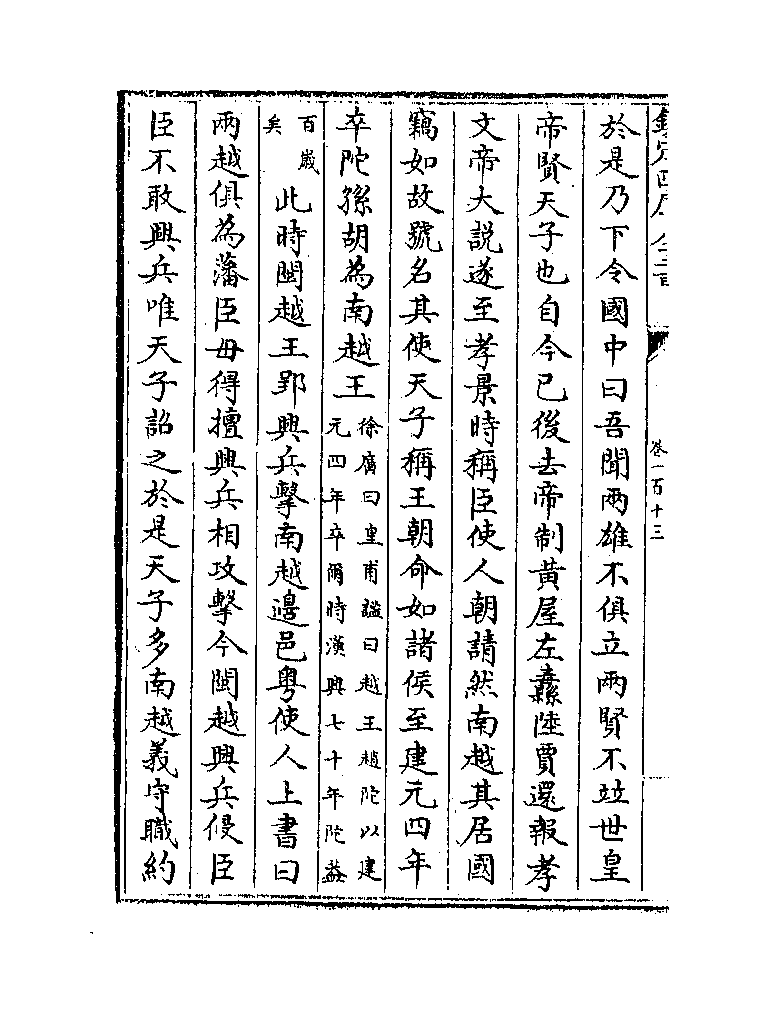 欽定四庫全書
卷一百十三
於是乃下令國中曰吾聞兩雄不俱立兩賢不竝世皇
帝賢天子也自今已後去帝制黃屋左纛陸賈還報孝
文帝大說遂至孝景時稱臣使人朝請然南越其居國
竊如故號名其使天子稱王朝命如諸侯至建元四年
卒陀孫胡為南越王徐廣曰皇甫謐曰越王趙陀以建
元四年卒爾時漢興七十年陀葢
百歲
矣此時閩越王郢興兵擊南越邊邑粤使人上書曰
兩越俱為藩臣毋得擅興兵相攻擊今閩越興兵侵臣
臣不敢興兵唯天子詔之於是天子多南越義守職約